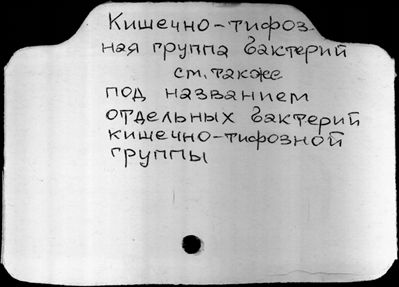 Кишечно-тифоз-
ная группа бактерий
см. также
под названием
отдельных бактерий
кишечно-тифозной
группы